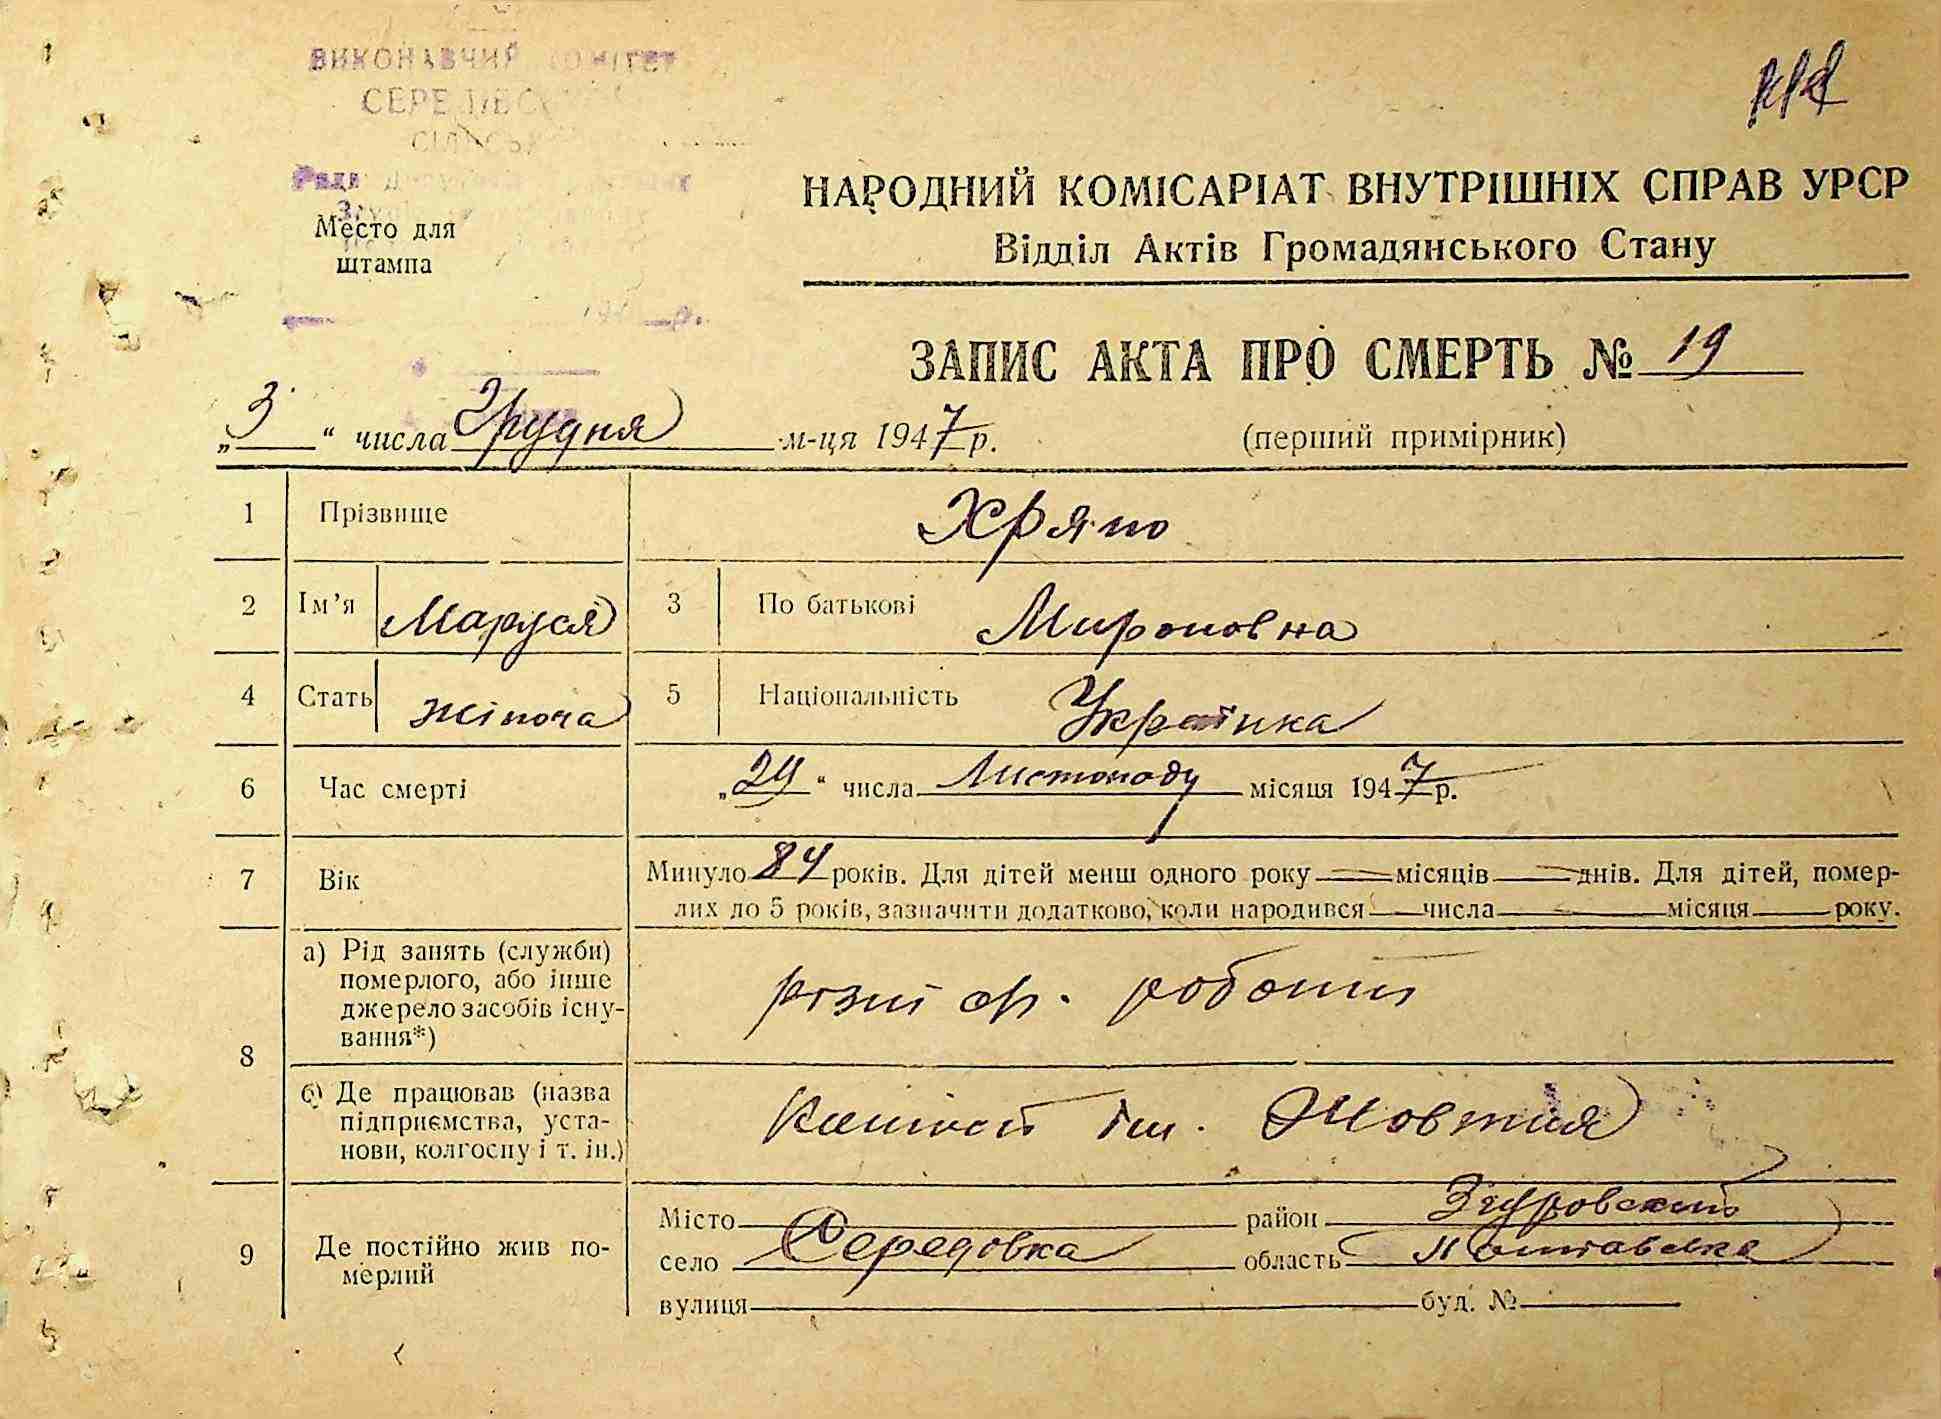 ВИКОНАВЧИЙ КОМІТЕТ
Место для
штампа
НАРОДНИЙ КОМІСАРІАТ ВНУТРІШНІХ СПРАВ УРСР
Відділ Актів Громадянського Стану
ЗАПИС АКТА ПРО СМЕРТЬ № 19
„3“ числа Грудня м-ця 1947 р.
(перший примірник)
1 Прізвище Хряпо
2 Ім'я Маруся 3 По батькові Мироновна
4 Стать жіноча 5 Національність Українка
6 Час смерті „29“ числа Листопаду місяця 1947 р.
7 Вік Минуло 84 років. Для дітей менш одного року місяців днів. Для дітей, помер-
лих до 5 років, зазначити додатково, коли народився числа місяця року.
8 а) Рід занять (служби)
померлого, або інше
джерело засобів існу-
вання*)
різні роботи
б) Де працював (назва
підприємства, уста-
нови, колгоспу і т. ін.)
Жовтня
9 Де постійно жив по-
мерлий
Місто район Згуровский
село Середовка область Полтавська
вулиця буд. №